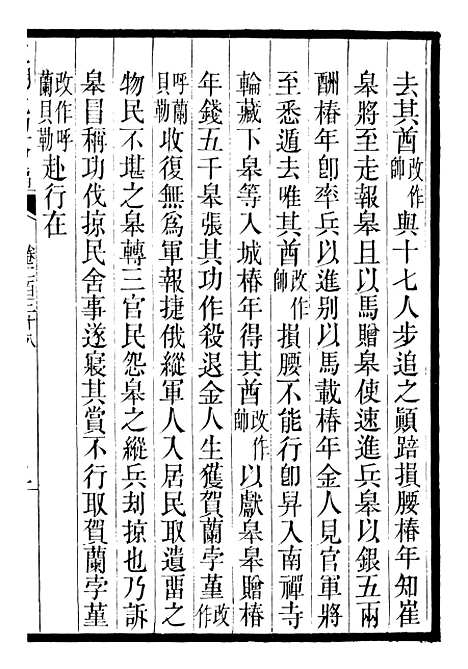 去其酋改作帥與十七人步追之顚踣損腰椿年知崔
皋將至走報皋且以馬贈皋使速進兵皋以銀五兩
酬椿年卽率兵以進别以馬載椿年金人見官軍將
至悉遁去唯其酋改作帥損腰不能行卽舁入南禪寺
輪藏下皋等入城椿年得其酋改作帥以獻皋皋贈椿
年錢五千皋張其功作殺退金人生獲賀蘭孛堇改作
呼蘭貝勒收復無爲軍報捷俄縱軍人入居民取遺畱之
物民不堪之皋轉三官民怨皋之縱兵刦掠也乃訴
皋冒稱功伐掠民舍事遂寢其賞不行取賀蘭孛堇
改作呼蘭貝勒赴行在
卷二百三十八